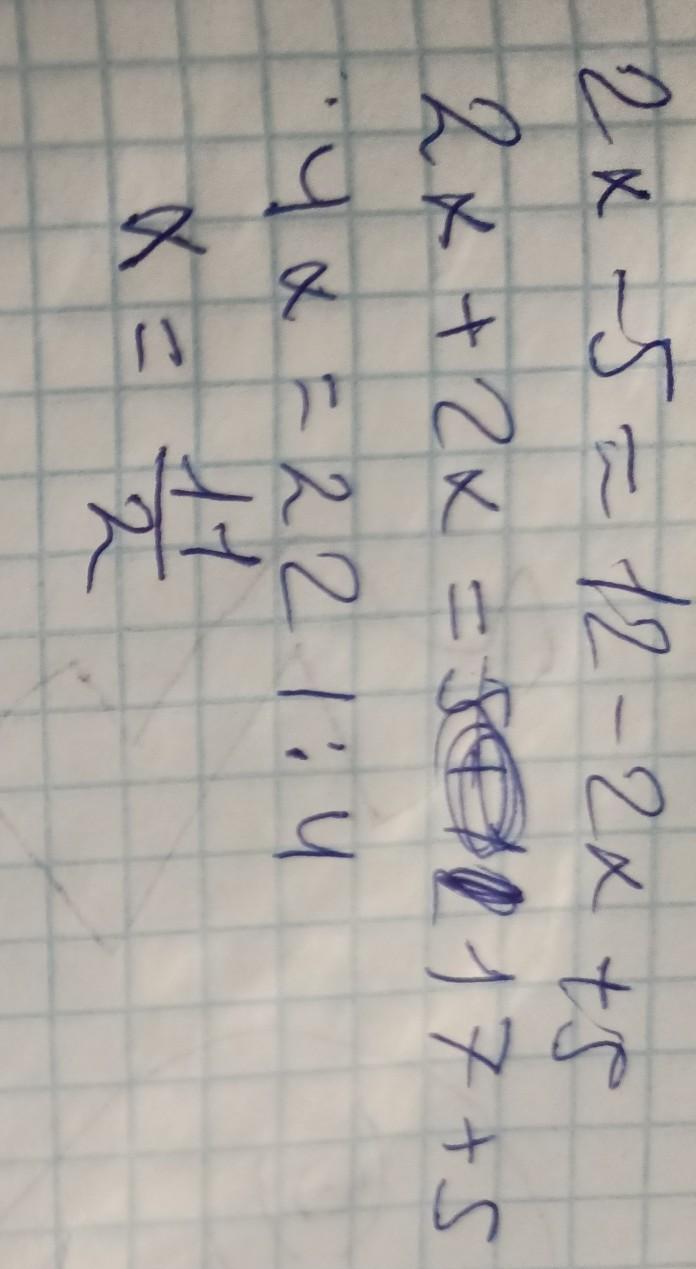 2x - 5 = 12 - 2x + 5
2x + 2x = 17 + 5
4x = 22 | : 4
x = 11/2